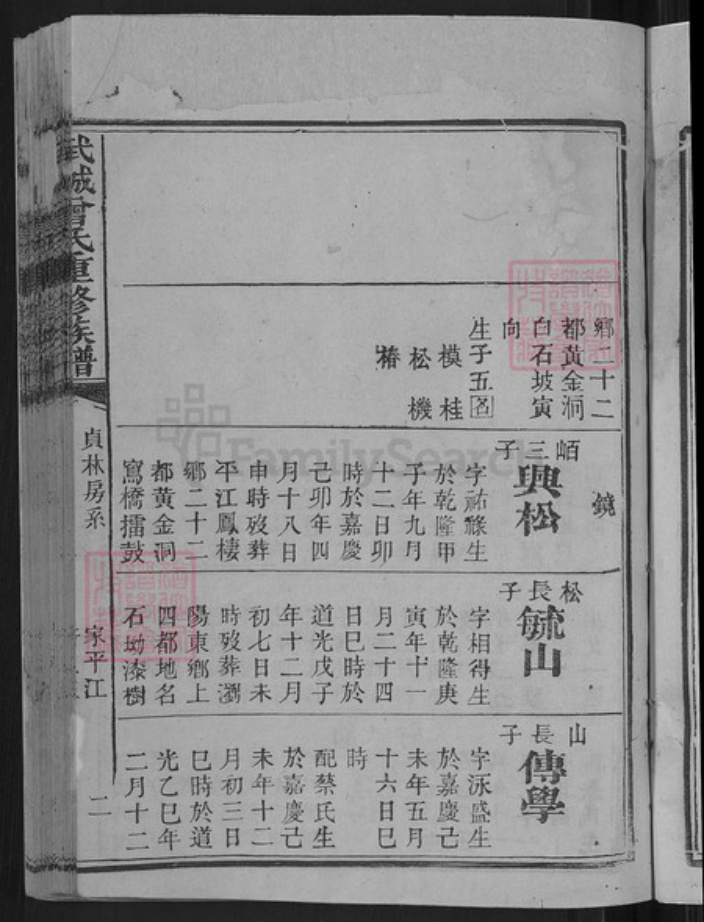 武城曾氏重修族譜
貞林房系
家平江
二
鄉二十二
都黃金洞
白石坡寅
向
生子五名
模桂
松機
椿
鏡
峘三子
興松
字祐祿生
於乾隆甲
子年九月
十二日卯
時於嘉慶
己卯年四
月十八日
申時歿葬
平江鳳棲
鄉二十二
都黃金洞
窩橋擂鼓
松長子
毓山
字相得生
於乾隆庚
寅年十一
月二十四
日巳時於
道光戊子
年十二月
初七日未
時歿葬瀏
陽東鄉上
四都地名
石坳漆樹
山長子
傳學
字泳盛生
於嘉慶己
未年五月
十六日巳
時
配蔡氏生
於嘉慶己
未年十二
月初三日
巳時於道
光乙巳年
二月十二
FamilySearch